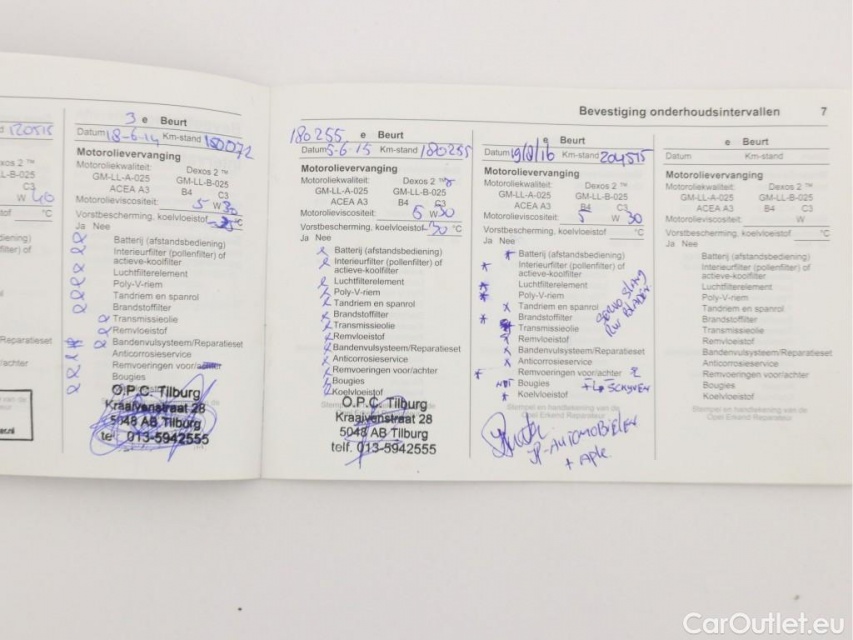 120515
xos 2 ™
LL-B-025
C3
W 40
Reparatieset
3 e Beurt
Datum 18-6-14 Km-stand 150072
Motorolievervanging
Motoroliekwaliteit: Dexos 2 ™
GM-LL-A-025 GM-LL-B-025
ACEA A3 B4 C3
Motorolieviscositeit: 5 W 30
Vorstbescherming, koelvloeistof °C
Ja Nee
Batterij (afstandsbediening)
Interieurfilter (pollenfilter) of
actieve-koolfilter
Luchtfilterelement
Poly-V-riem
Tandriem en spanrol
Brandstoffilter
Transmissieolie
Remvloeistof
Bandenvulsysteem/Reparatieset
Anticorrosieservice
Remvoeringen voor/achter
Bougies
O.P.C. Tilburg
Kraaivenstraat 28
5048 AB Tilburg
tel. 013-5942555
Bevestiging onderhoudsintervallen 7
180255 e Beurt
Datum 5-6-15 Km-stand 180255
Motorolievervanging
Motoroliekwaliteit: Dexos 2 ™
GM-LL-A-025 GM-LL-B-025
ACEA A3 B4 C3
Motorolieviscositeit: 5 W 30
Vorstbescherming, koelvloeistof -30 °C
Ja Nee
Batterij (afstandsbediening)
Interieurfilter (pollenfilter) of
actieve-koolfilter
Luchtfilterelement
Poly-V-riem
Tandriem en spanrol
Brandstoffilter
Transmissieolie
Remvloeistof
Bandenvulsysteem/Reparatieset
Anticorrosieservice
Remvoeringen voor/achter
Bougies
Koelvloeistof
O.P.C. Tilburg
Kraaivenstraat 28
5048 AB Tilburg
telf. 013-5942555
e Beurt
Datum Km-stand 204515
Motorolievervanging
Motoroliekwaliteit: Dexos 2 ™
GM-LL-A-025 GM-LL-B-025
ACEA A3 B4 C3
Motorolieviscositeit: 5 W 30
Vorstbescherming, koelvloeistof °C
Ja Nee
Batterij (afstandsbediening)
Interieurfilter (pollenfilter) of
actieve-koolfilter
Luchtfilterelement
Poly-V-riem
Tandriem en spanrol
Brandstoffilter
Transmissieolie
Remvloeistof
Bandenvulsysteem/Reparatieset
Anticorrosieservice
Remvoeringen voor/achter
Bougies
Koelvloeistof
Stempel en handtekening van de
Opel Erkend Reparateur
JP-AUTOMOBIELEN
e Beurt
Datum Km-stand
Motorolievervanging
Motoroliekwaliteit: Dexos 2 ™
GM-LL-A-025 GM-LL-B-025
ACEA A3 B4 C3
Motorolieviscositeit: W
Vorstbescherming, koelvloeistof °C
Ja Nee
Batterij (afstandsbediening)
Interieurfilter (pollenfilter) of
actieve-koolfilter
Luchtfilterelement
Poly-V-riem
Tandriem en spanrol
Brandstoffilter
Transmissieolie
Remvloeistof
Bandenvulsysteem/Reparatieset
Anticorrosieservice
Remvoeringen voor/achter
Bougies
Koelvloeistof
Stempel en handtekening van de
Opel Erkend Reparateur
CarOutlet.eu